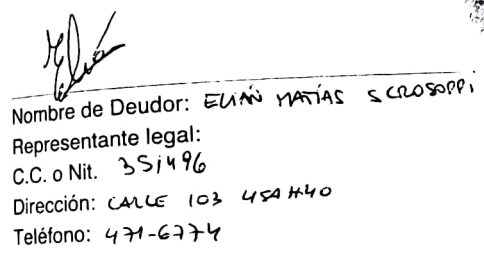 Elián
Nombre de Deudor: ELIAN MATÍAS SCROSOPPI
Representante legal:
C.C. o Nit. 351496
Dirección: CALLE 103 45A #40
Teléfono: 471-6774